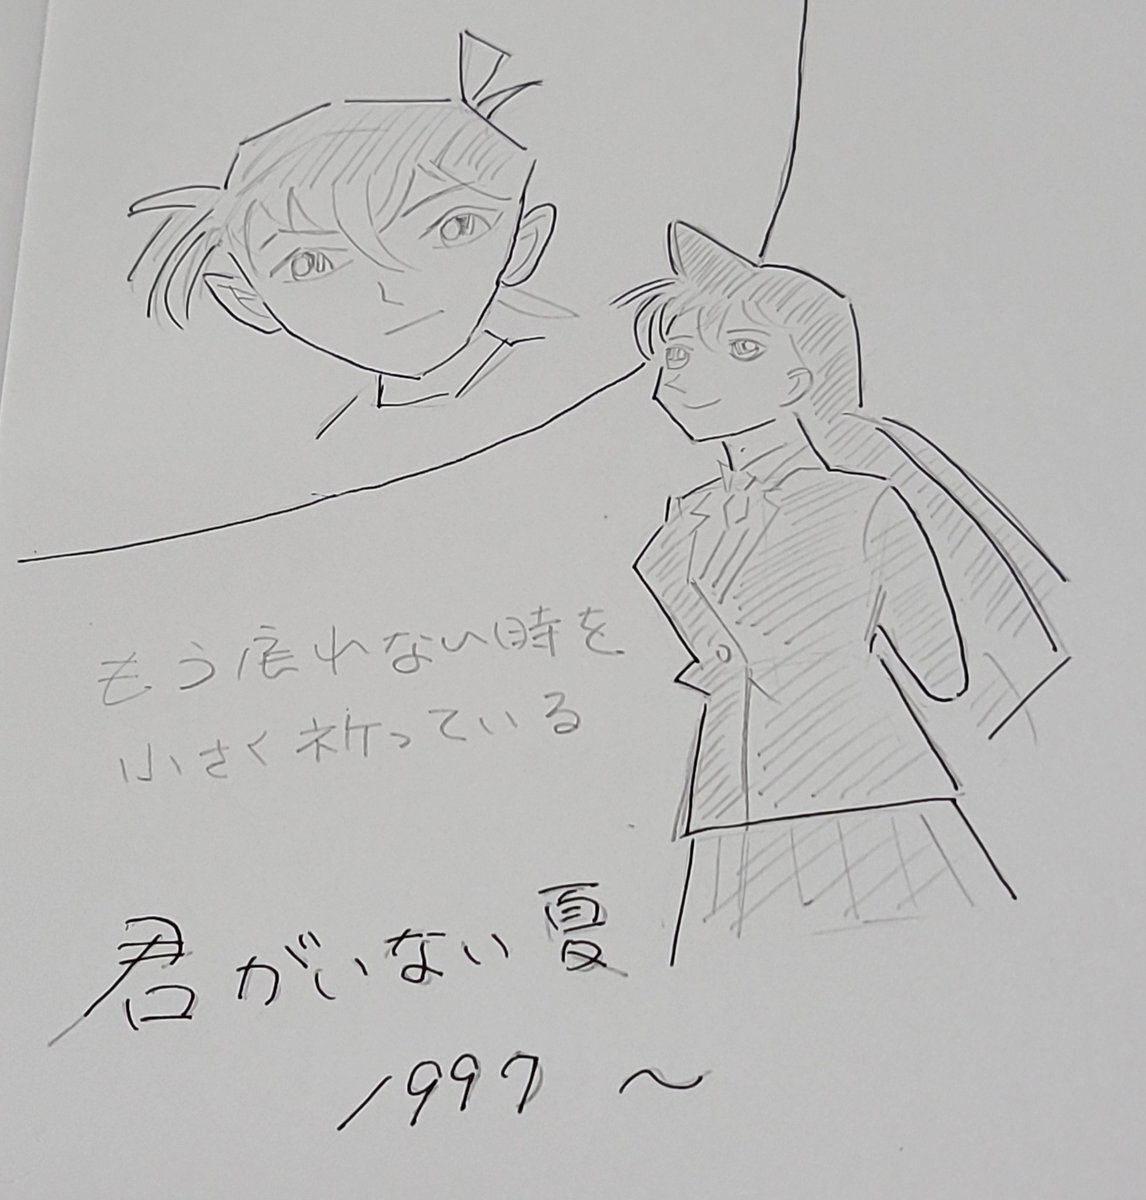 もう戻れない時を
小さく祈っている
君がいない夏
1997 ～